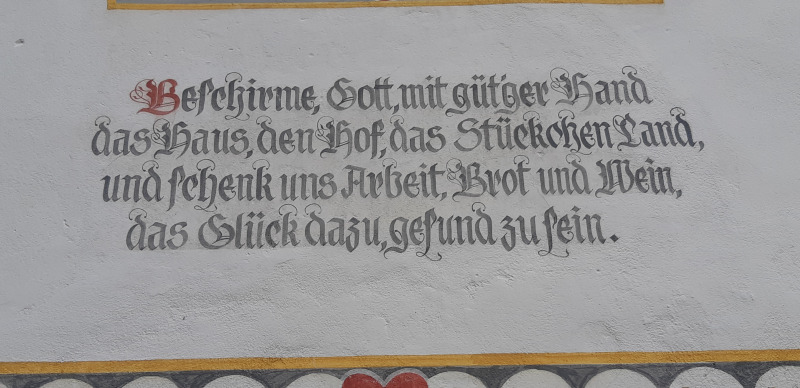 Beſchirme, Gott, mit güt'ger Hand
das Haus, den Hof, das Stückchen Land,
und ſchenk uns Arbeit, Brot und Wein,
das Glück dazu, geſund zu ſein.